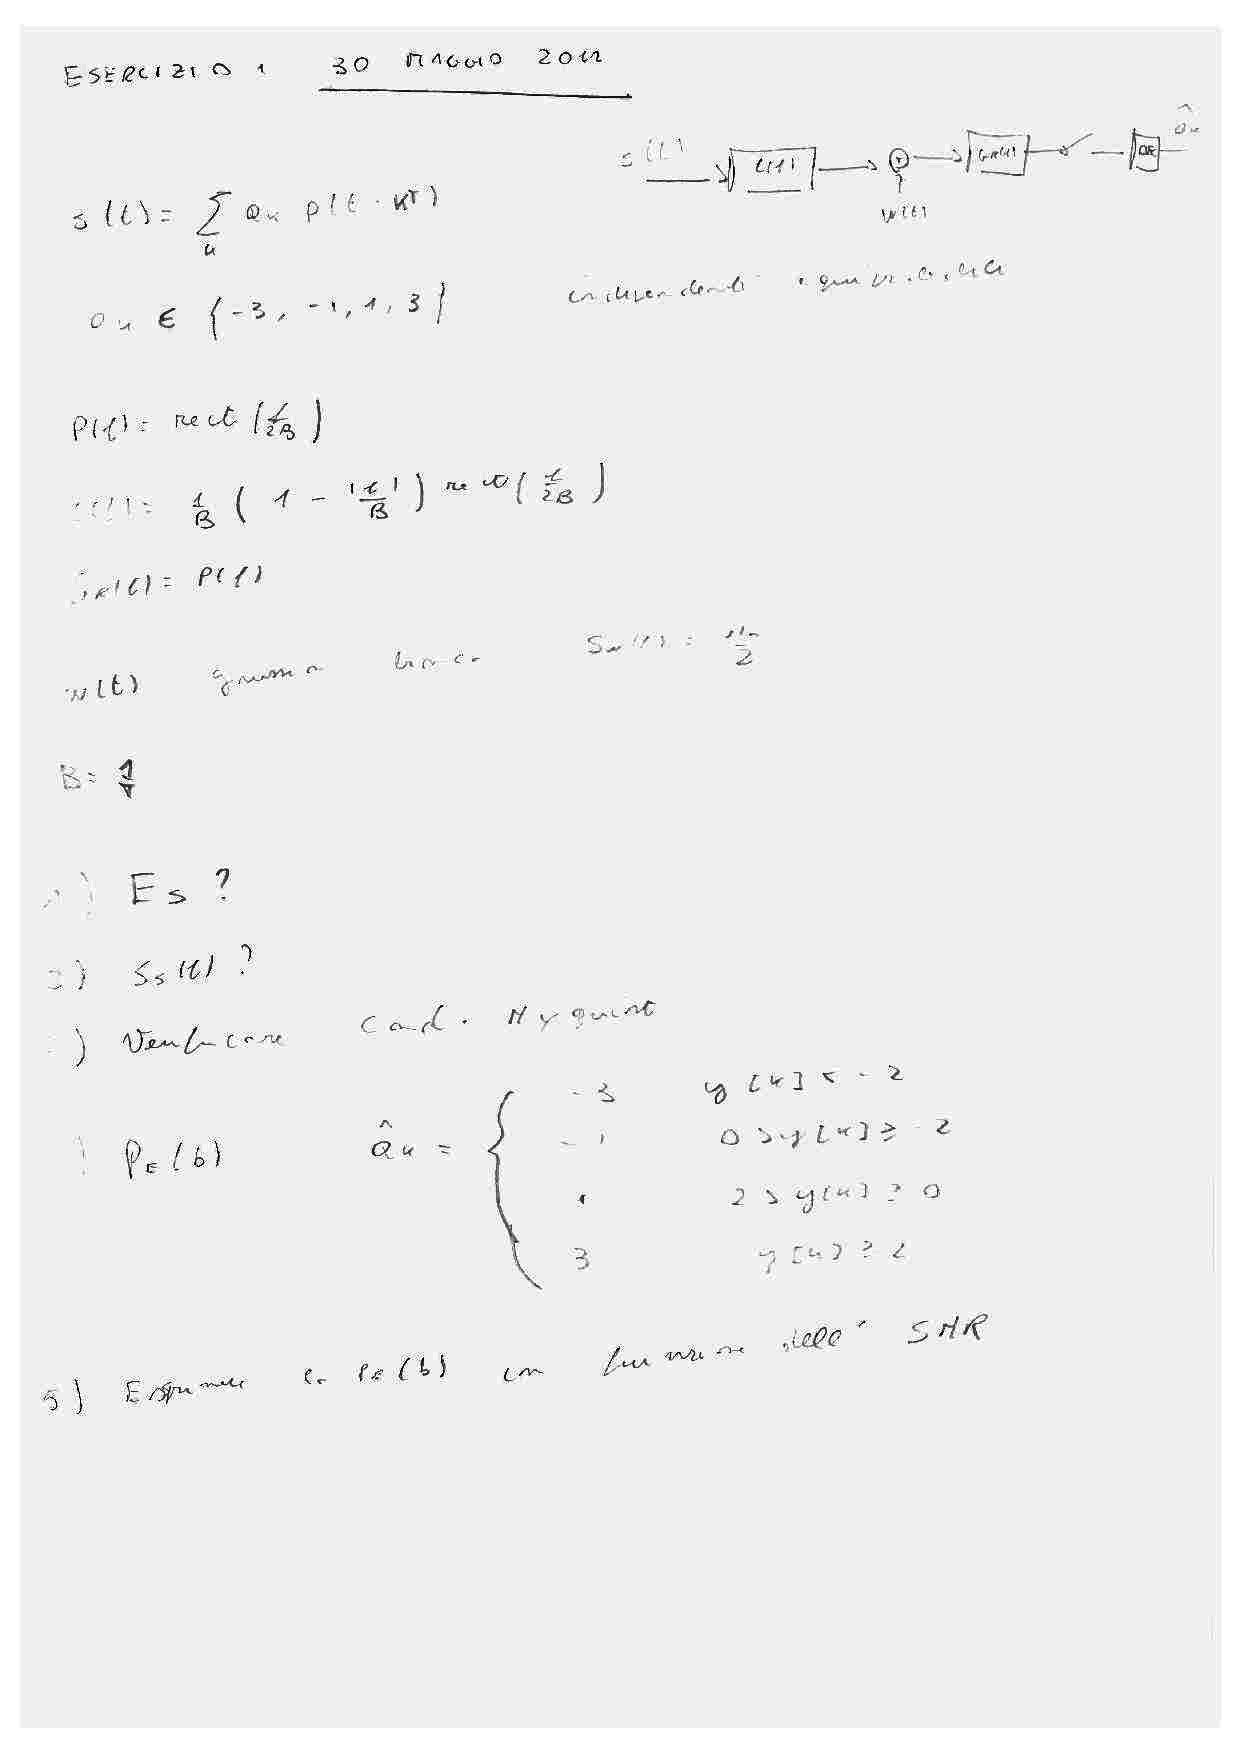 ESERCIZIO 1 30 MAGGIO 2012
s(t)
w(t)
s(t) = Σ ak p(t - kT)
k
ak ∈ {-3, -1, 1, 3} indipendenti equiprobabili
P(f) = rect(f/2B)
= 1/B (1 - |f|/B) rect(f/2B)
GR(f) = P(f)
w(t) Sw(f) = N0/2
B = 1/T
1) Es ?
2) Ss(f) ?
) Verificare Cond. Nyquist
) PE(b) âk = { -3 y[k] < -2
-1 0 > y[k] ≥ -2
1 2 > y[k] ≥ 0
3 y[k] ≥ 2
5) Esprimere la PE(b) in funzione dell' SNR